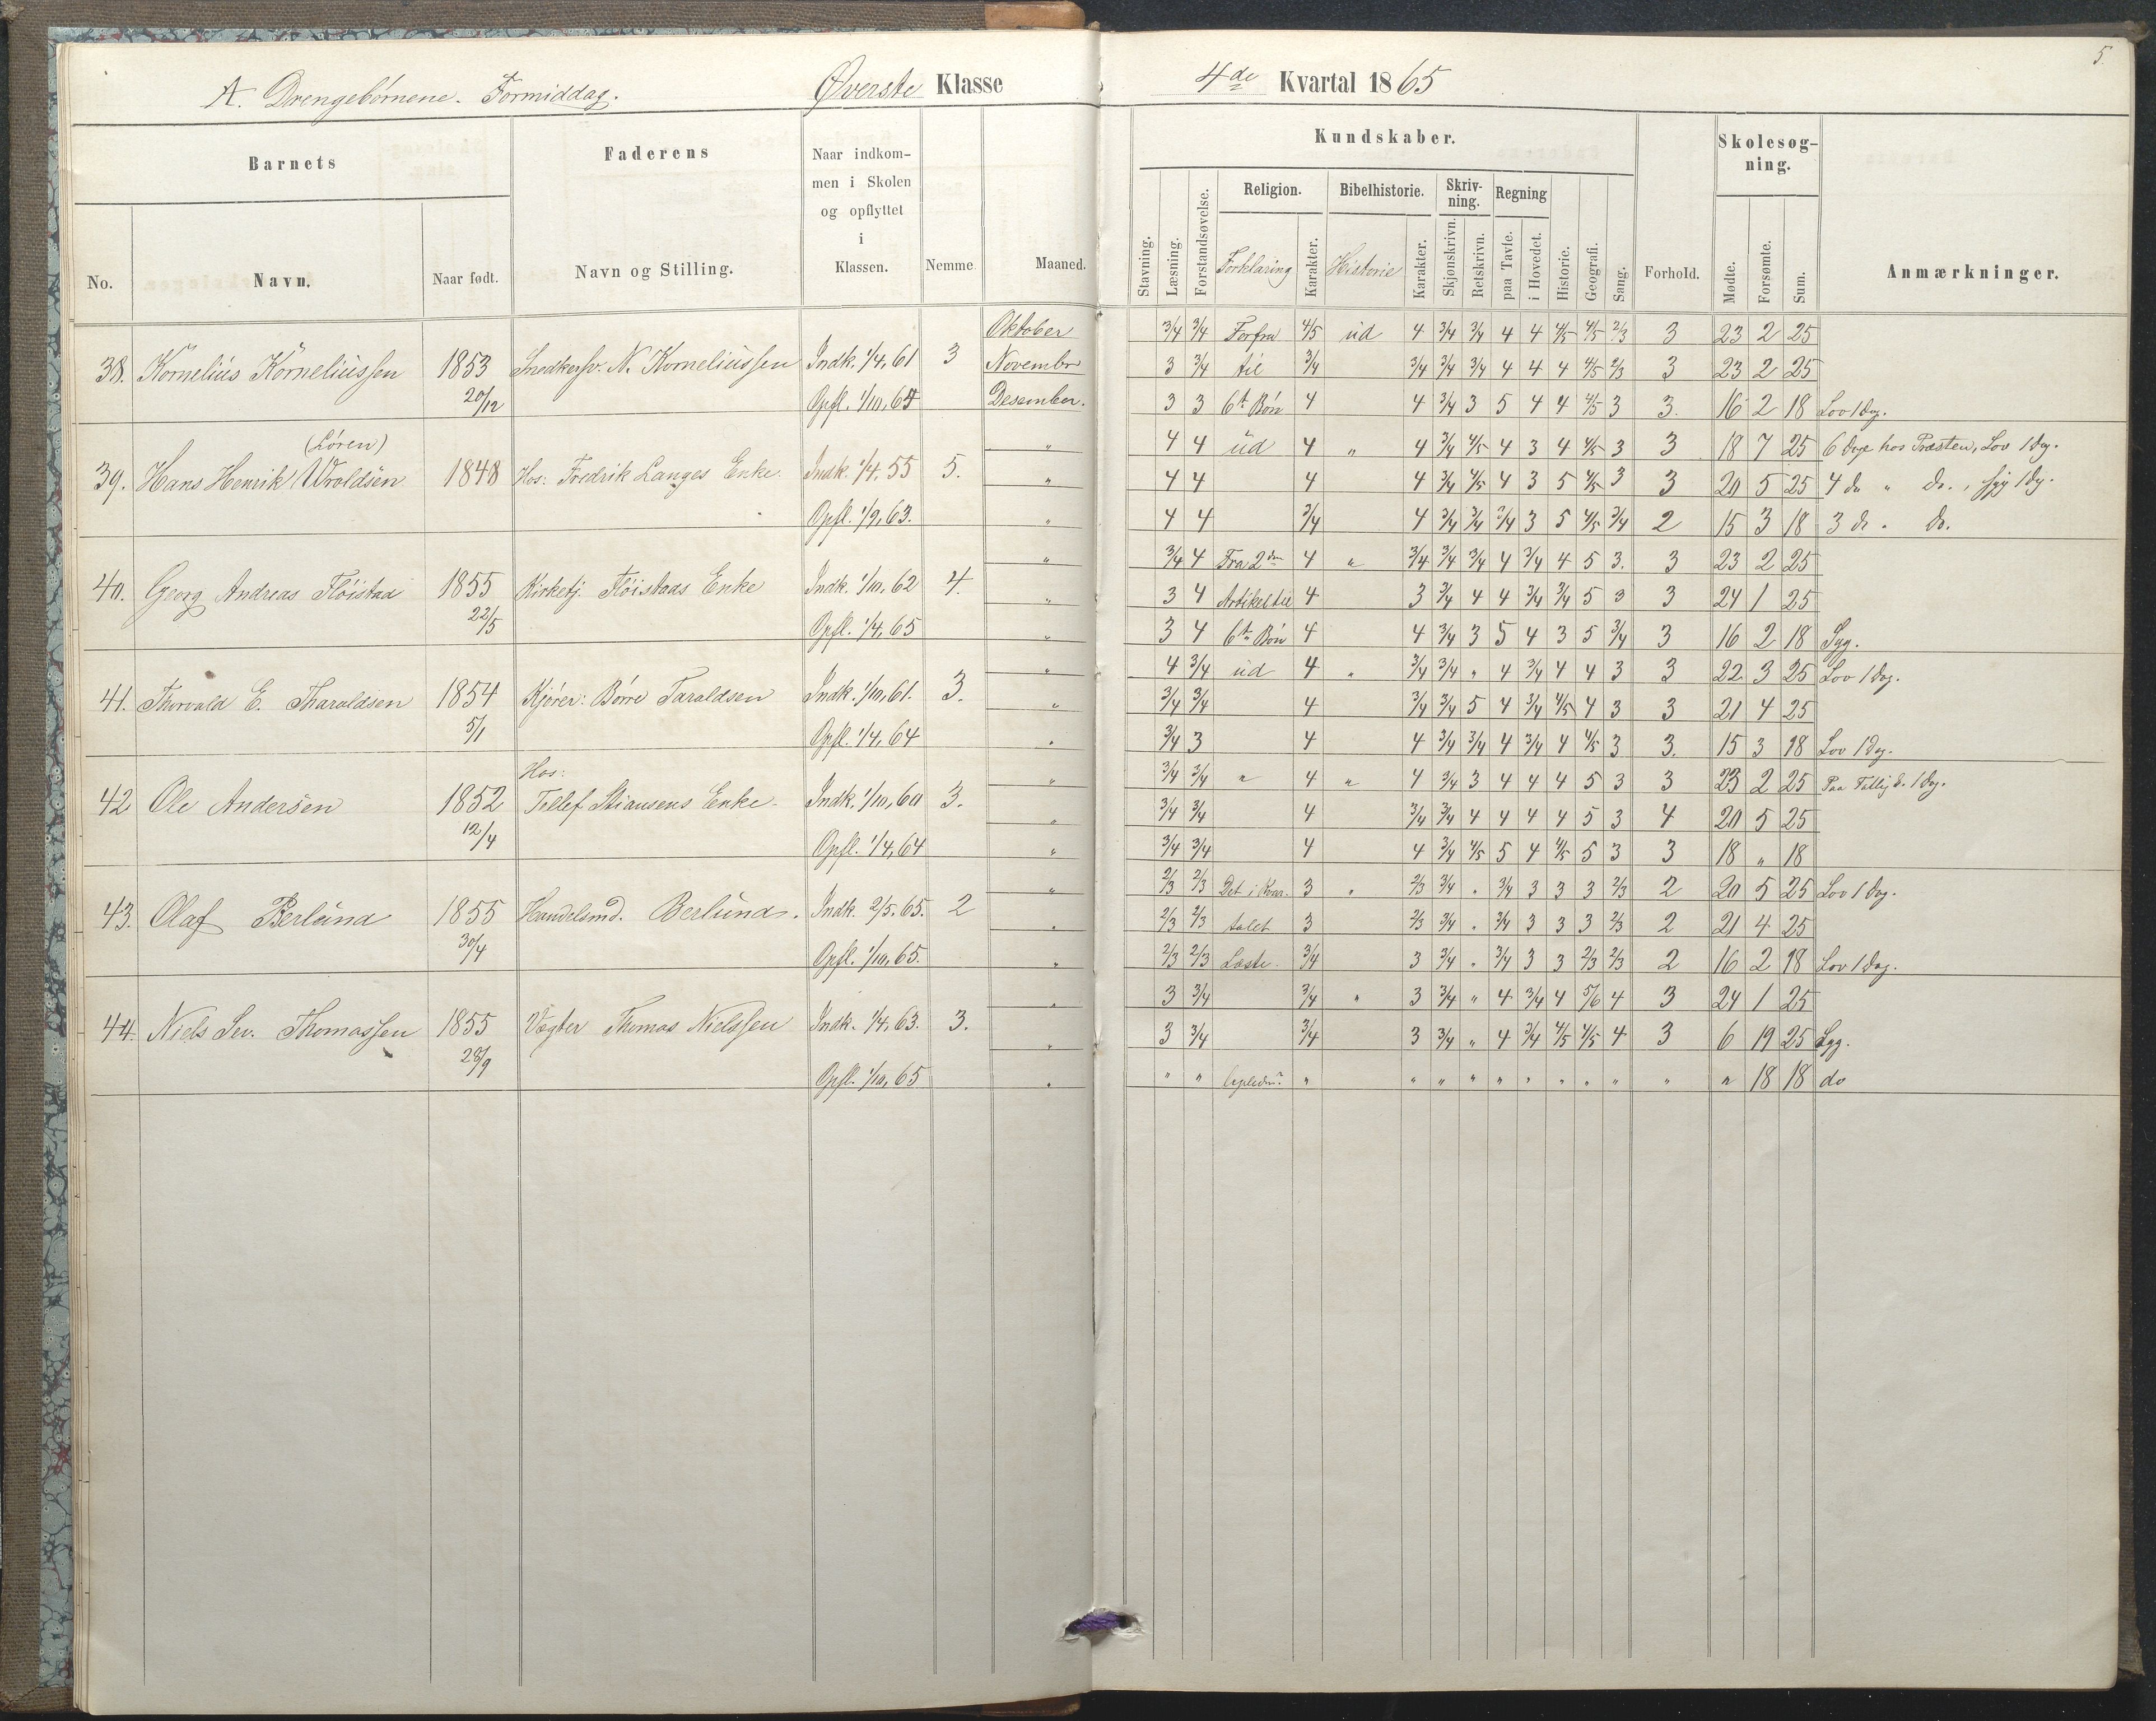 A. Drengebørnene. Formiddag. Øverste Klasse
Barnets
Faderens
Naar indkom-
men i Skolen
og opflyttet
i
Klassen.
No. Navn. Naar født. Navn og Stilling. Nemme Maaned.
Oktober
38. Kornelius Korneliussen 1853 Snedkersv. N. Korneliussen Indk. 1/4, 61 3 November
20/12 Opfl. 1/10, 65 Desember.
(Søren)
39. Hans Henrik Wroldsen 1848 Hos: Fredrik Langes Enke. Indk. 1/4, 55 5. "
Opfl. 1/9, 63. "
"
40. Georg Andreas Fløistad 1855 Kirketj. Fløistads Enke Indk. 1/10, 62 4. "
22/5 Opfl. 1/4, 65 "
"
41. Thorvald E. Tharaldsen 1854 Kjører: Børre Taraldsen Indk. 1/10, 61. 3. "
5/1 Opfl. 1/4, 64 "
Hos: "
42 Ole Andersen 1852 Tellef Stiansens Enke. Indk. 1/10, 60 3. "
12/4 Opfl. 1/4, 64 "
"
43. Olaf Berlund 1855 Handelsmd. Berlund. Indk. 2/5. 65. 2 "
30/4 Opfl. 1/10, 65. "
"
44. Niels Sev. Thomassen 1855 Vægter Thomas Nielssen Indk. 1/4, 63. 3. "
28/9 Opfl. 1/10, 65 "
5.
4de Kvartal 1865
Kundskaber.
Skolesøg-
ning.
Religion. Bibelhistorie. Skriv-
ning. Regning
Stavning. Læsning. Forstandsøvelse. Forklaring Karakter. Historie Karakter. Skjønskrivn. Retskrivn. paa Tavle. i Hovedet. Historie. Geografi. Sang. Forhold. Mødte. Forsømte. Sum. Anmærkninger.
3/4 3/4 Forfra 4/5 ud 4 3/4 3/4 4 4 4/5 4/5 2/3 3 23 2 25
3 3/4 til 3/4 3/4 3/4 3/4 4 4 4 4/5 2/3 3 23 2 25
3 3 6t Bøn 4 4 3/4 3 5 4 4 4/5 3 3. 16 2 18 Lov 1 Dag.
4 4 ud 4 " 4 3/4 4/5 4 3 4 4/5 3 3 18 7 25 6 Dage hos Præsten, Lov 1 Dag.
4 4 4 4 3/4 4/5 4 3 5 4/5 3 3 20 5 25 4 do " do., syg 1 Dg.
4 4 3/4 4 3/4 3/4 3/4 3 5 4/5 3/4 2 15 3 18 3 do. " do.
3/4 4 Fra 2den 4 " 3/4 3/4 3/4 4 3/4 4 5 3. 3 23 2 25
3 4 Artikel til 4 3 3/4 4 4 3/4 3/4 5 3 3 24 1 25
3 4 6te Bøn 4 4 3/4 3 5 4 3 5 3/4 3 16 2 18 Syg.
4 3/4 ud 4 " 3/4 3/4 " 4 3/4 4 4 3 3 22 3 25 Lov 1 Dag.
3/4 3/4 4 3/4 3/4 5 4 3/4 4/5 4 3 3 21 4 25
3/4 3 4 4 3/4 3/4 4 3/4 4 4/5 3 3. 15 3 18 Lov 1 Dag.
3/4 3/4 " 4 " 4 3/4 3 4 4 4 5 3 3 23 2 25
3/4 3/4 4 3/4 3/4 4 4 4 4 5 3 4 20 5 25
3/4 3/4 4 4 3/4 4/5 5 4 4/5 5 3 3 18 " 18
2/3 2/3 Det i Kvar- 3 " 2/3 3/4 " 3/4 3 3 3 2/3 2 20 5 25 Lov 1 Dag.
2/3 2/3 talet 3 2/3 3/4 " 3/4 3 3 3 2/3 2 21 4 25
2/3 2/3 Læste. 3/4 3 3/4 " 3/4 3 3 2/3 2/3 2 16 2 18 Lov 1 Dag.
3 3/4 3/4 " 3 3/4 " 4 3/4 4 5/6 4 3 24 1 25
3 3/4 3/4 3 3/4 " 4 3/4 4/5 4/5 4 3 6 19 25 Syg.
" " " " " " " " " " " " " 18 18 do